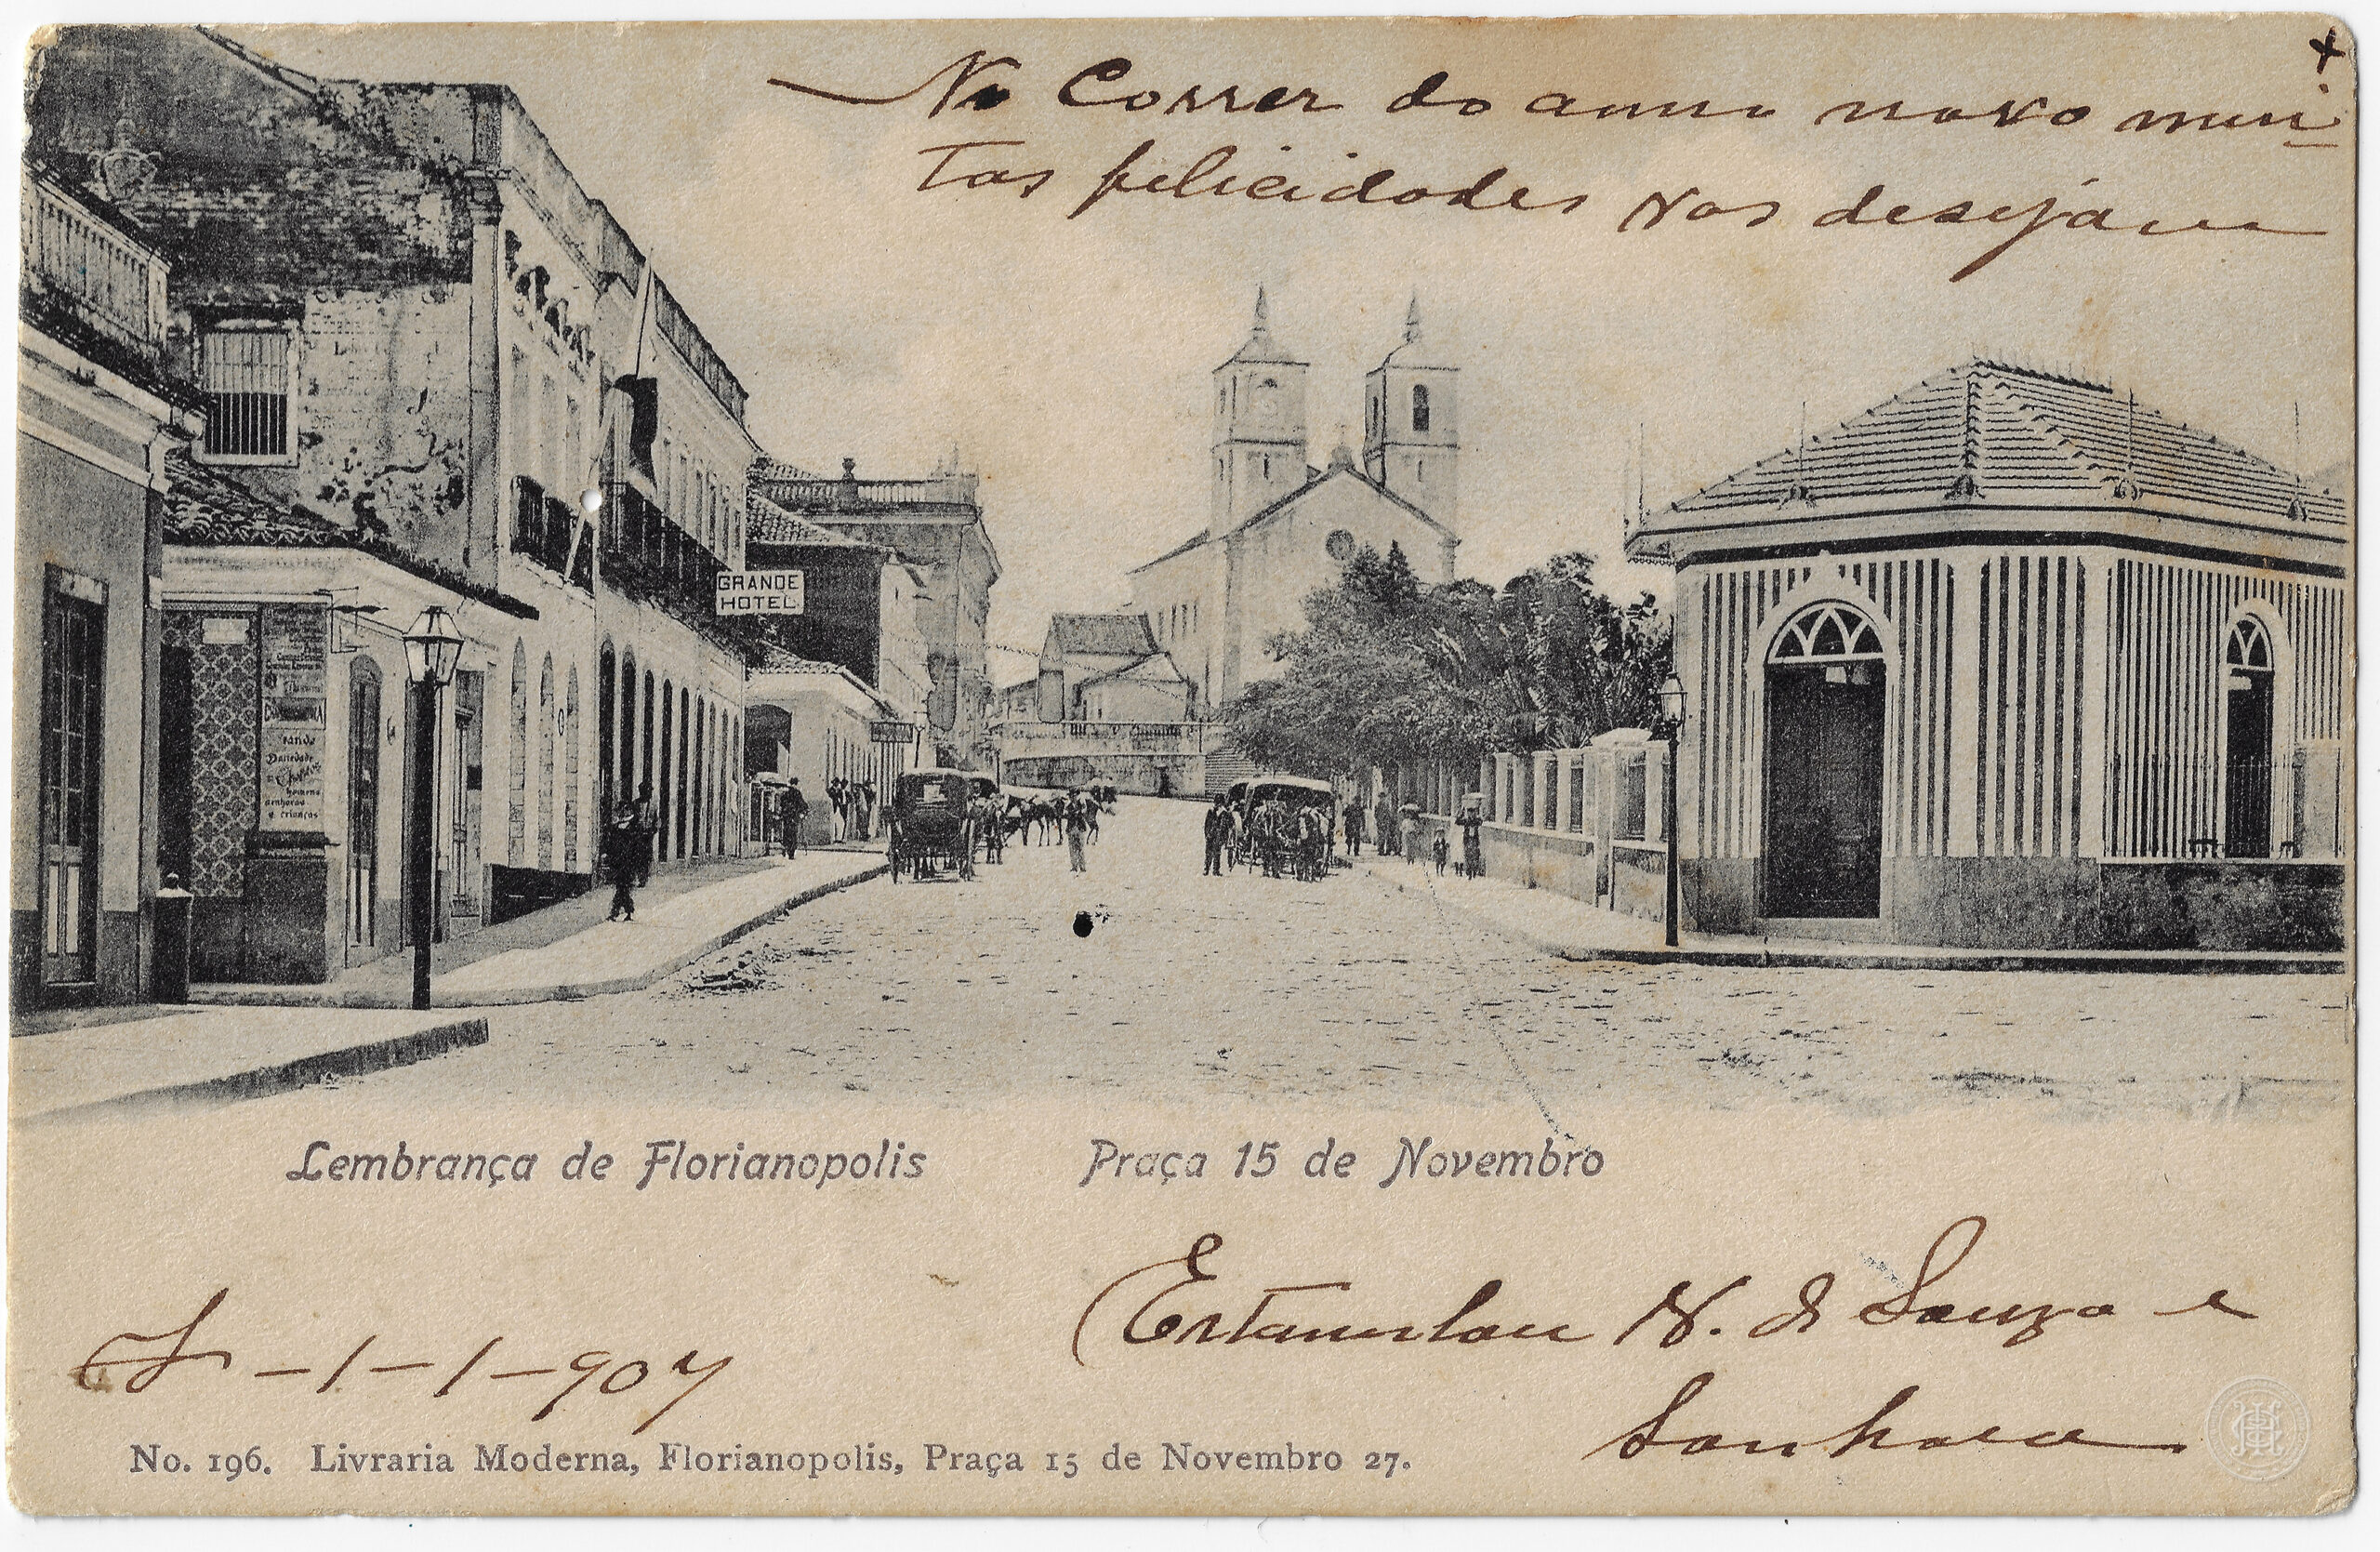 No Correr do anno novo mui
tas felicidades vos desejam
GRANDE
HOTEL
senhoras
e crianças
Lembrança de Florianopolis Praça 15 de Novembro
Estanislau N. de Souza e
F-1-1-907
Senhora
No. 196. Livraria Moderna, Florianopolis, Praça 15 de Novembro 27.